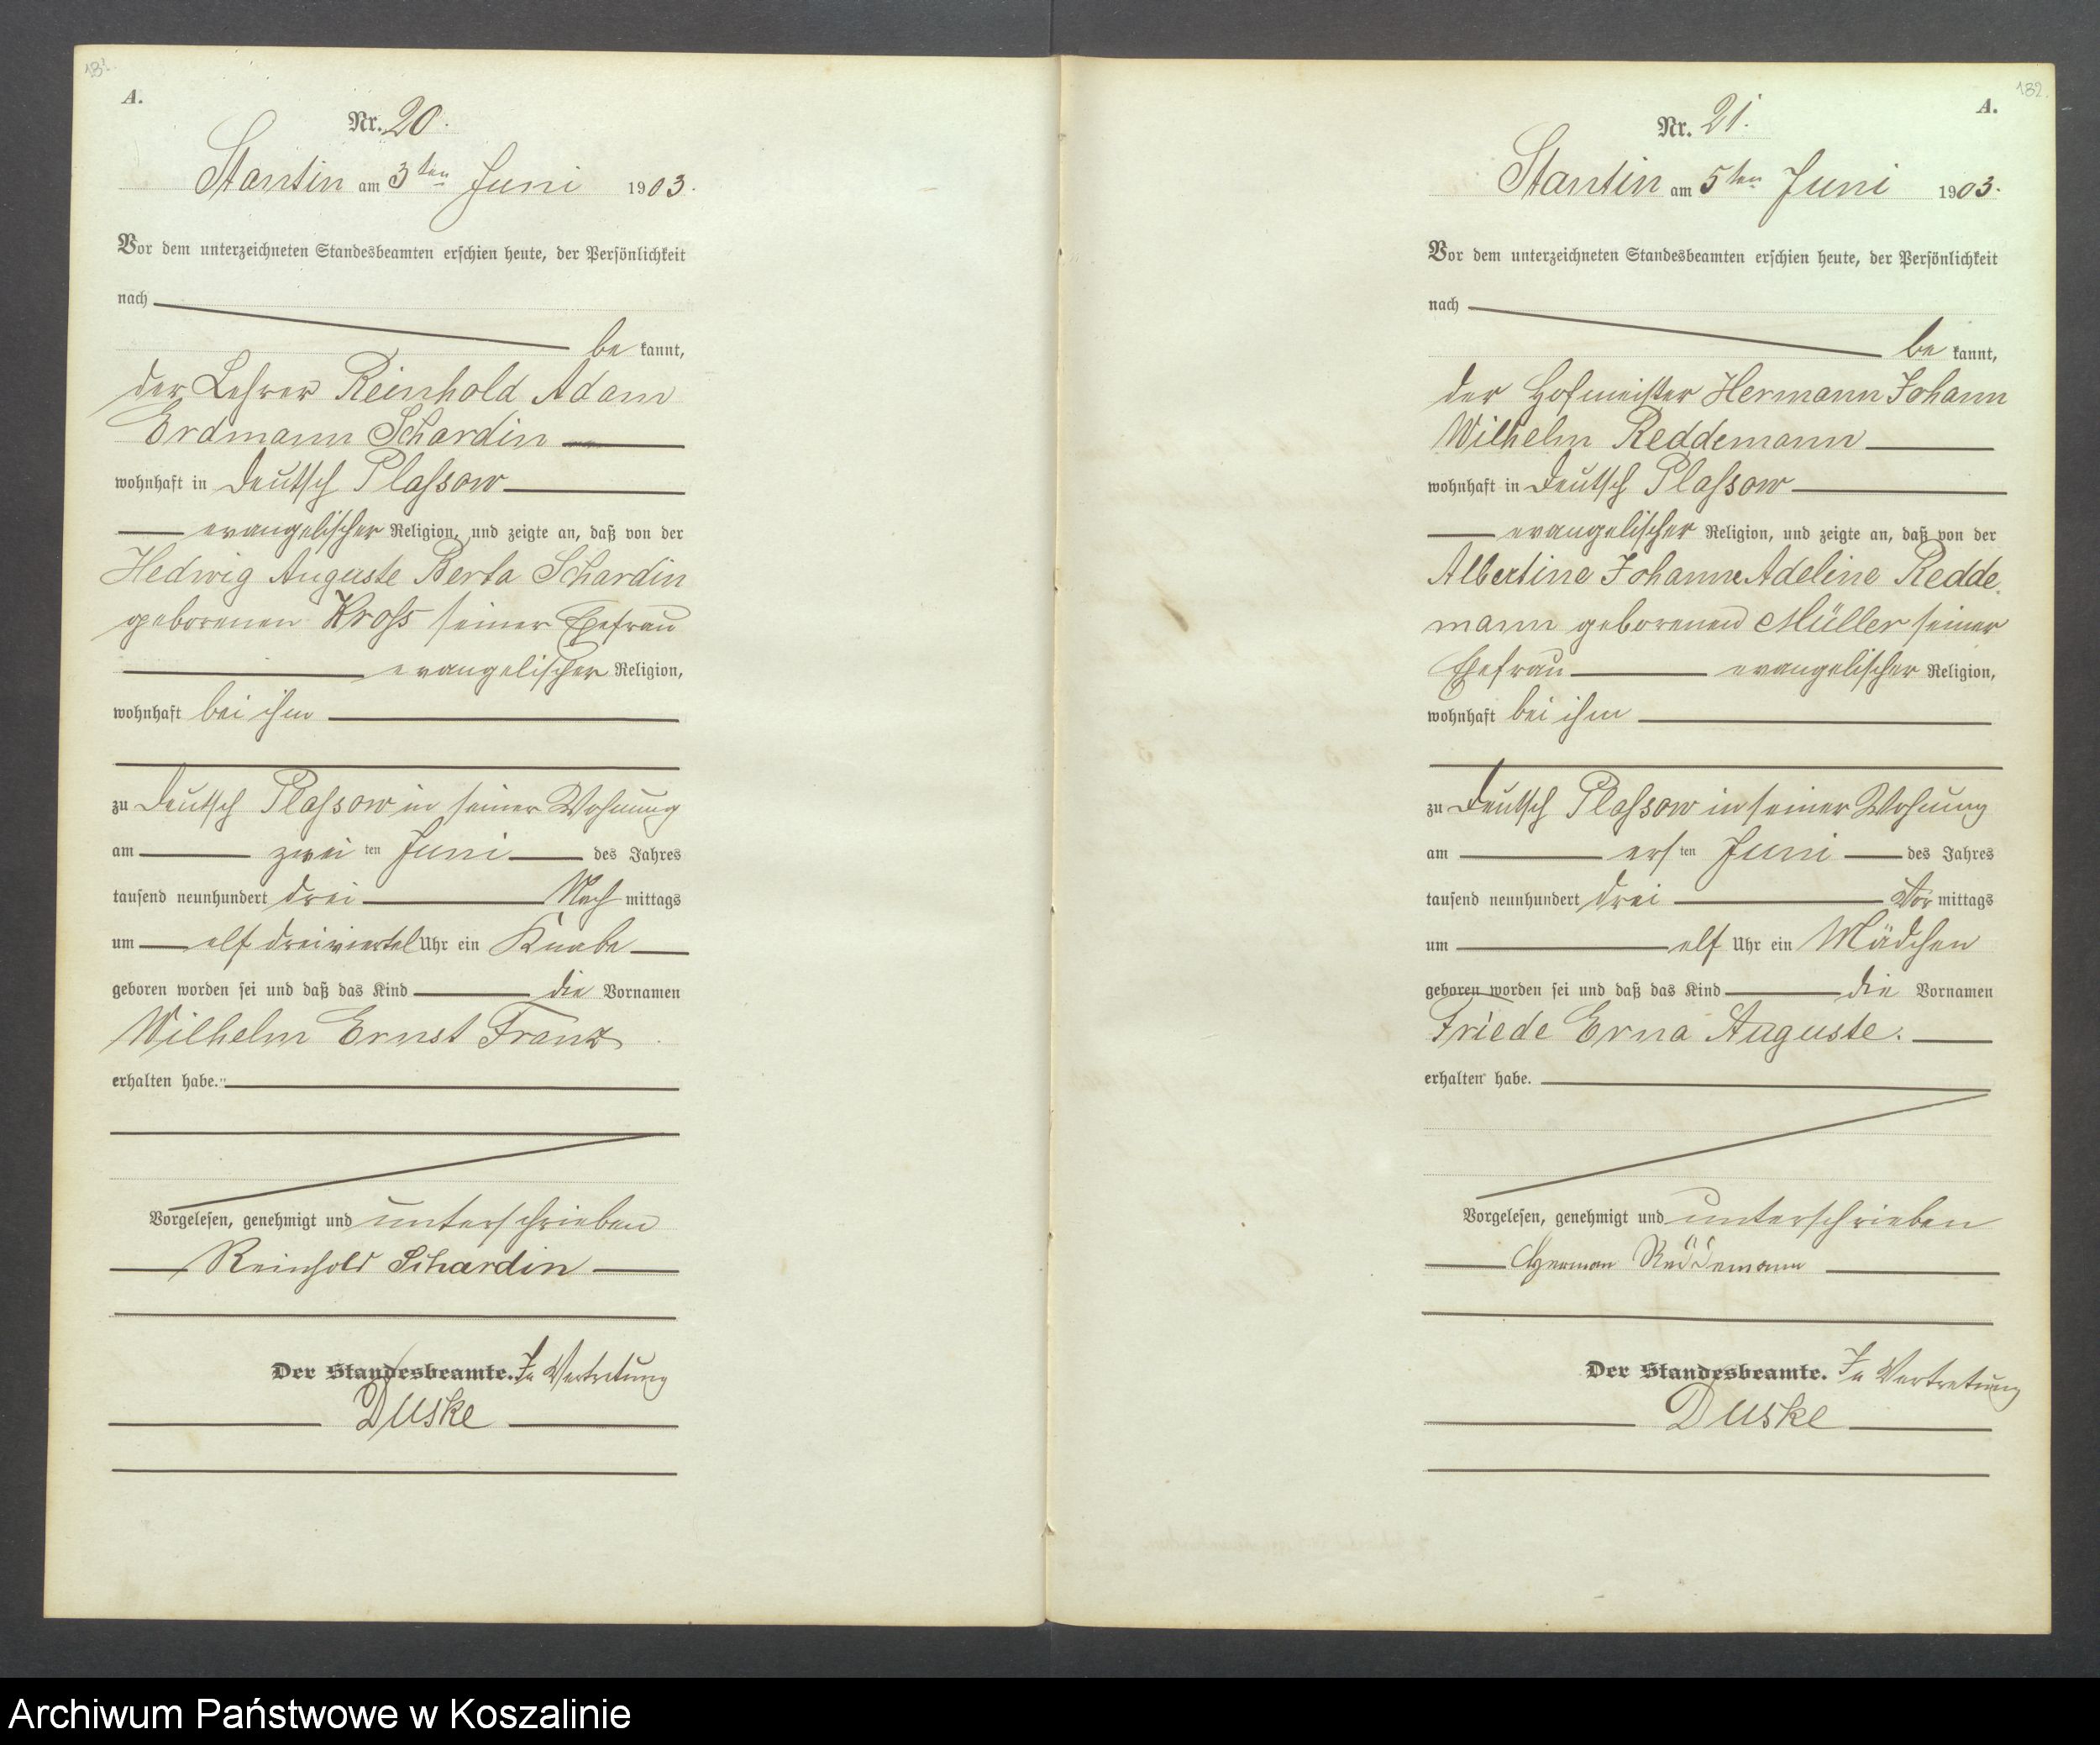 131.
A.
Nr. 20.
Stantin am 3ten Juni 1903.
Vor dem unterzeichneten Standesbeamten erschien heute, der Persönlichkeit
nach
be kannt,
der Lehrer Reinhold Adam
Erdmann Schardin
wohnhaft in Deutsch Plassow
evangelischer Religion, und zeigte an, daß von der
Hedwig Auguste Berta Schardin
geborenen Kross seiner Ehefrau
evangelischer Religion,
wohnhaft bei ihm
zu Deutsch Plassow in seiner Wohnung
am zwei ten Juni des Jahres
tausend neunhundert drei Nach mittags
um elf dreiviertel Uhr ein Knabe
geboren worden sei und daß das Kind die Vornamen
Wilhelm Ernst Franz
erhalten habe.
Vorgelesen, genehmigt und unterschrieben
Reinhold Schardin
Der Standesbeamte. In Vertretung
Duske
132.
A.
Nr. 21.
Stantin am 5ten Juni 1903.
Vor dem unterzeichneten Standesbeamten erschien heute, der Persönlichkeit
nach
be kannt,
der Hofmeister Hermann Johann
Wilhelm Reddemann
wohnhaft in Deutsch Plassow
evangelischer Religion, und zeigte an, daß von der
Albertine Johanne Adeline Redde
mann geborenen Müller seiner
Ehefrau evangelischer Religion,
wohnhaft bei ihm
zu Deutsch Plassow in seiner Wohnung
am ers ten Juni des Jahres
tausend neunhundert drei Vor mittags
um elf Uhr ein Mädchen
geboren worden sei und daß das Kind die Vornamen
Friede Erna Auguste.
erhalten habe.
Vorgelesen, genehmigt und unterschrieben
Herman Reddemann
Der Standesbeamte. In Vertretung
Duske
Archiwum Państwowe w Koszalinie